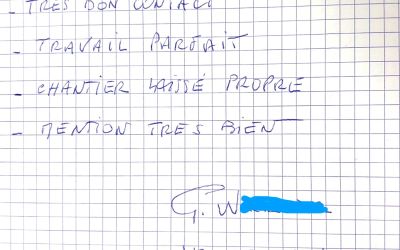 - TRES BON CONTACT
- TRAVAIL PARFAIT
- CHANTIER LAISSÉ PROPRE
- MENTION TRES BIEN
G. W